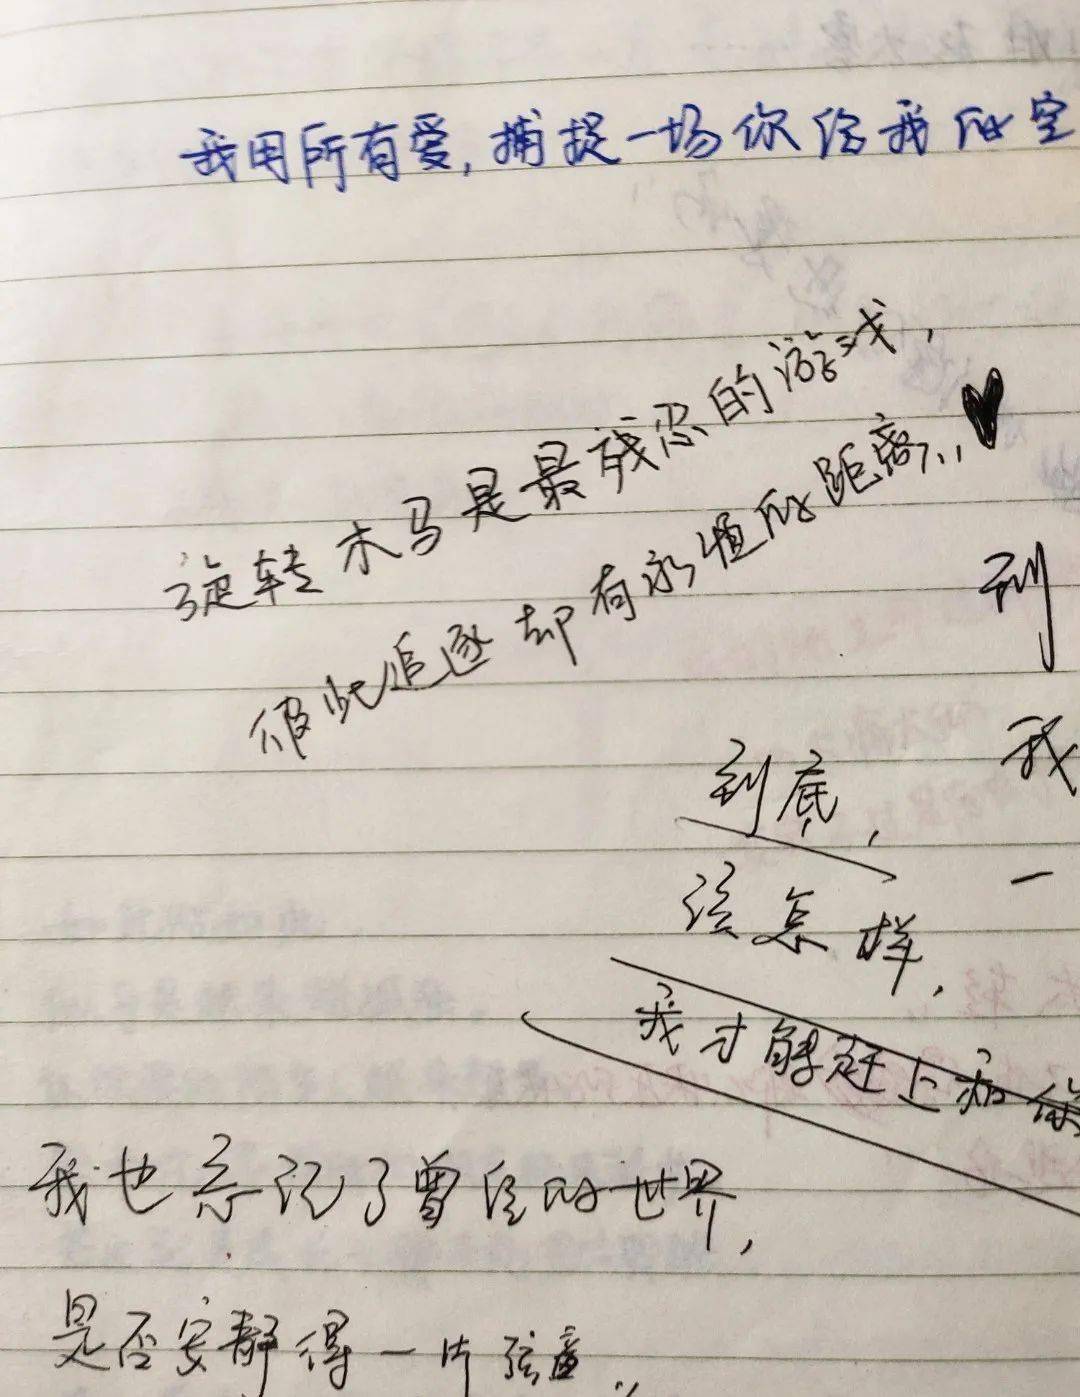 我用所有爱，捕捉一场你给我的空
旋转木马是最残忍的游戏，
彼此追逐却有永恒的距离...
到
我
到底，
一
该怎样，
我才能赶上和你
我也忘记了曾经的世界，
是否安静得一片弦音，